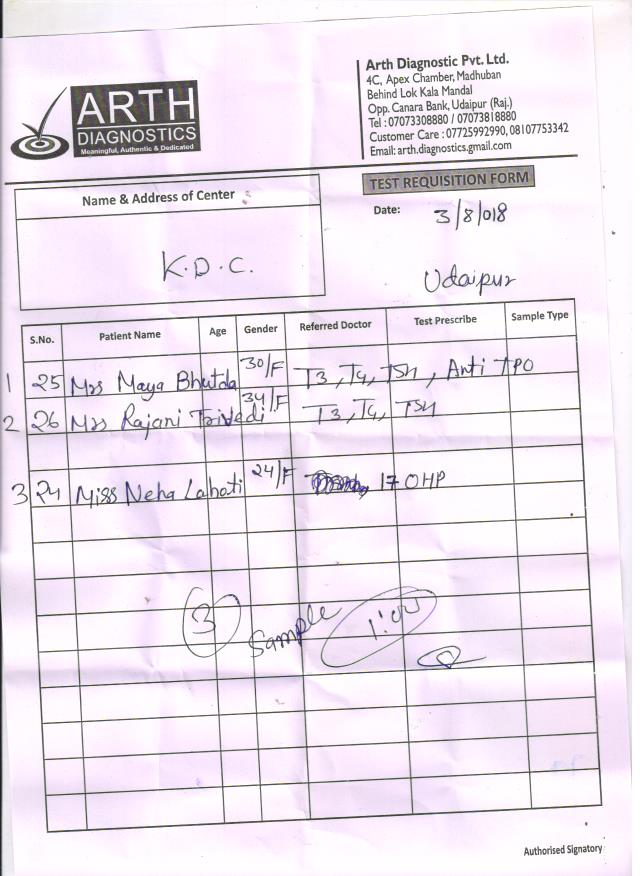 ARTH
DIAGNOSTICS
Meaningful, Authentic & Dedicated
Arth Diagnostic Pvt. Ltd.
4C, Apex Chamber, Madhuban
Behind Lok Kala Mandal
Opp. Canara Bank, Udaipur (Raj.)
Tel : 07073308880 / 07073818880
Customer Care : 07725992990, 08107753342
Email: arth.diagnostics.gmail.com
TEST REQUISITION FORM
Name & Address of Center
Date: 3/8/018
K.D.C.
Udaipur
S.No. Patient Name Age Gender Referred Doctor Test Prescribe Sample Type
1 25 Mrs Maya Bhutda 30/F T3, T4, TSH, Anti TPO
2 26 Mrs Rajani Trivedi 34/F T3, T4, TSH
3 24 Miss Neha Lahoti 24/F 17 OHP
3 Sample 1:00
Authorised Signatory